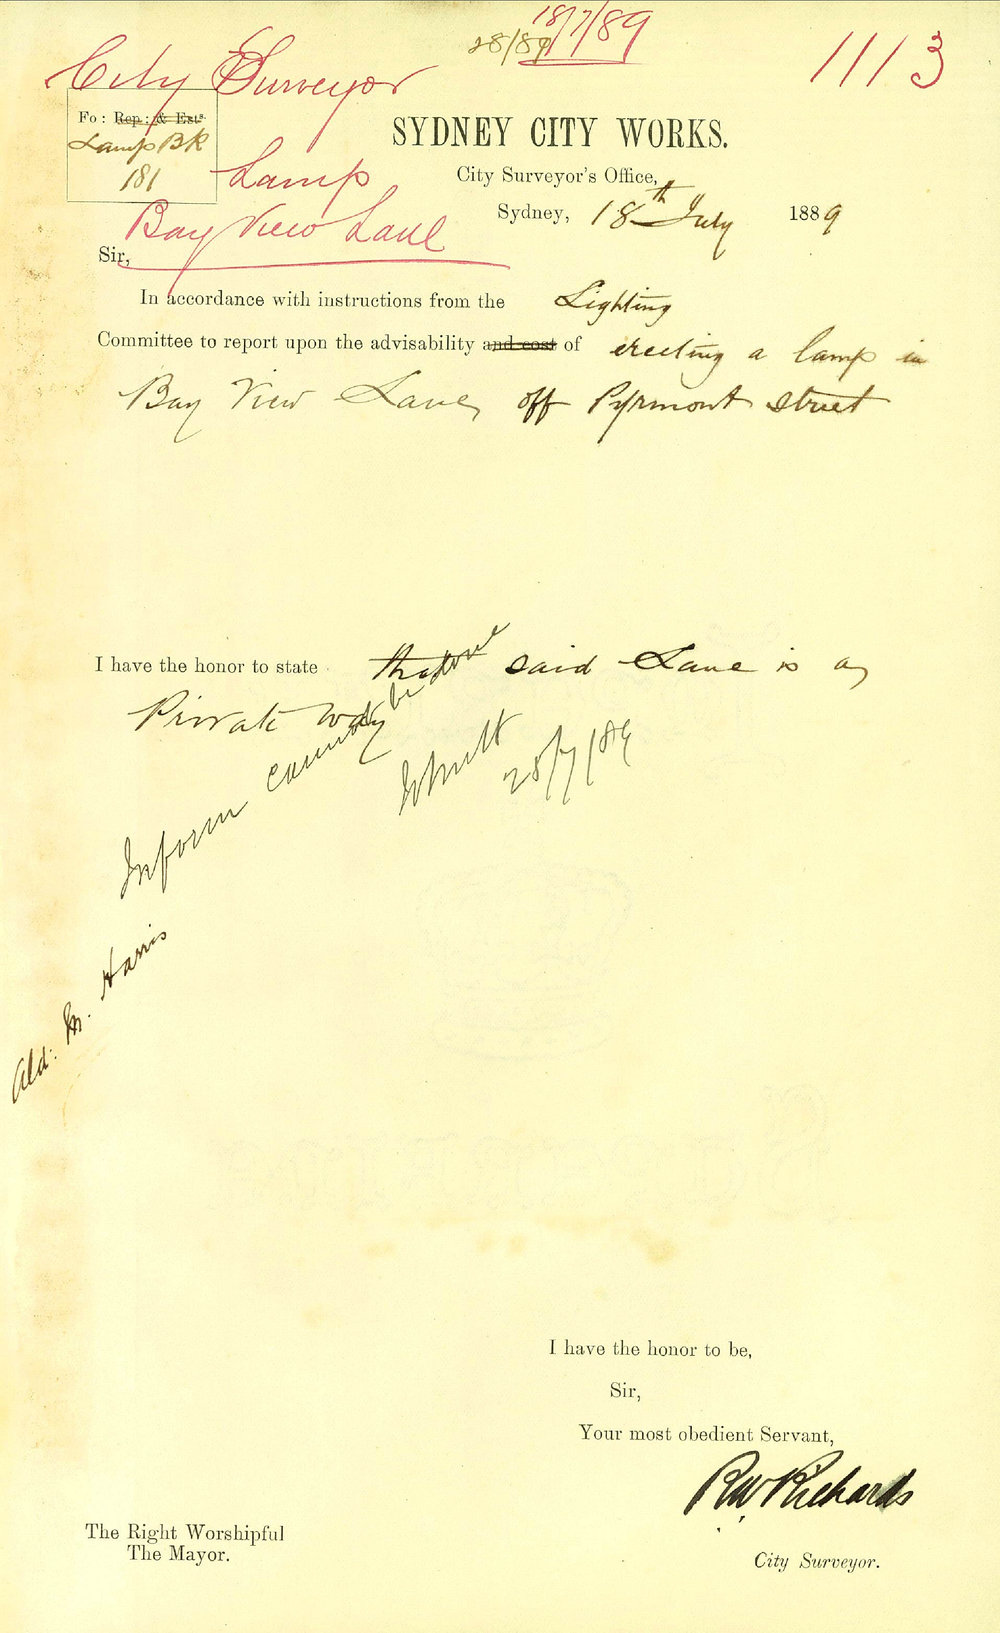 18/7/89
28/89
1113
City Surveyor
Fo: Rep: & Ests.
Lamp BK
181
Lamp
Bay View Lane
SYDNEY CITY WORKS.
City Surveyor's Office,
Sydney, 18th July 1889
Sir,
In accordance with instructions from the Lighting
Committee to report upon the advisability and cost of erecting a lamp in
Bay View Lane, off Pyrmont street
I have the honor to state that said Lane is a
Private Way
Inform cannot be done
28/7/89
Ald: M. Harris
I have the honor to be,
Sir,
Your most obedient Servant,
RW Richards
The Right Worshipful
The Mayor.
City Surveyor.